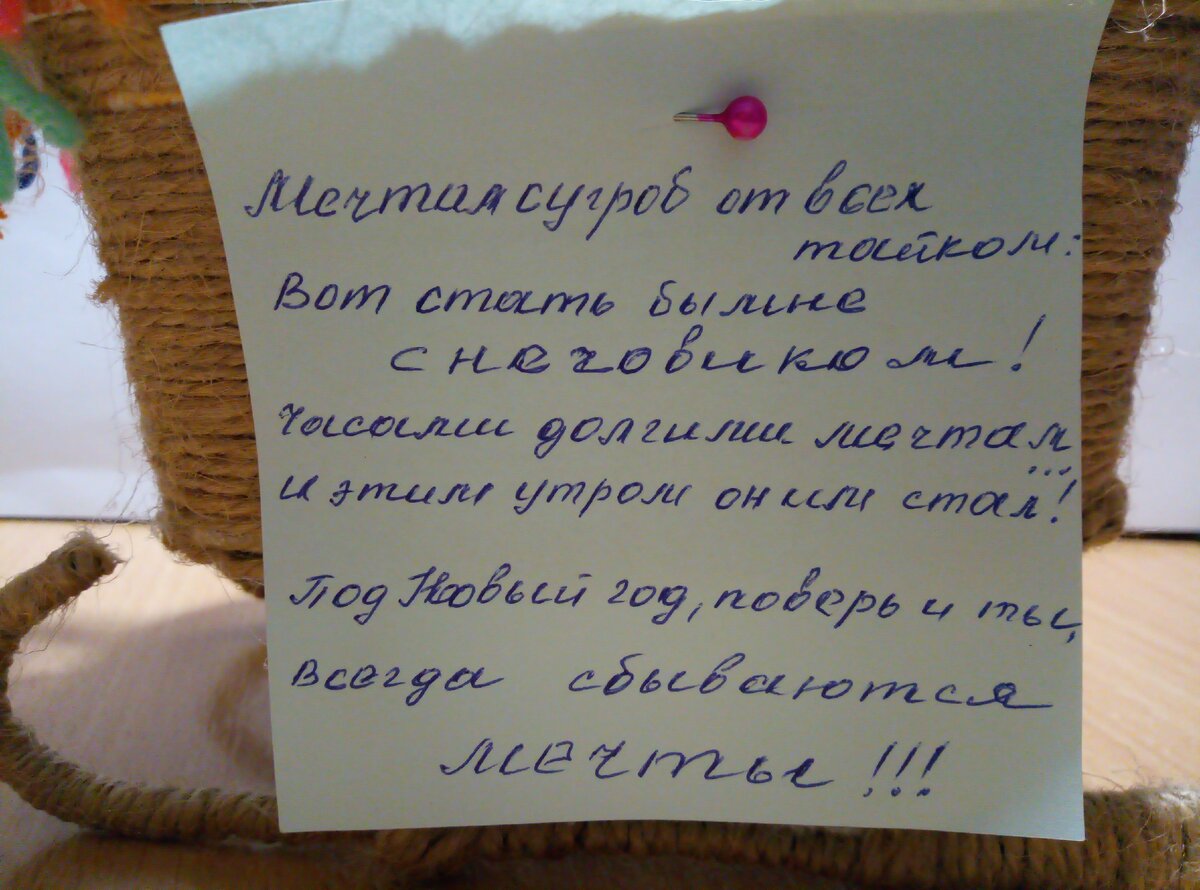 Мечтал сугроб от всех
тайком:
Вот стать бы мне
снеговиком!
Часами долгими мечтал
...
и этим утром он им стал!
Под Новый год, поверь и ты,
всегда сбываются
мечты!!!